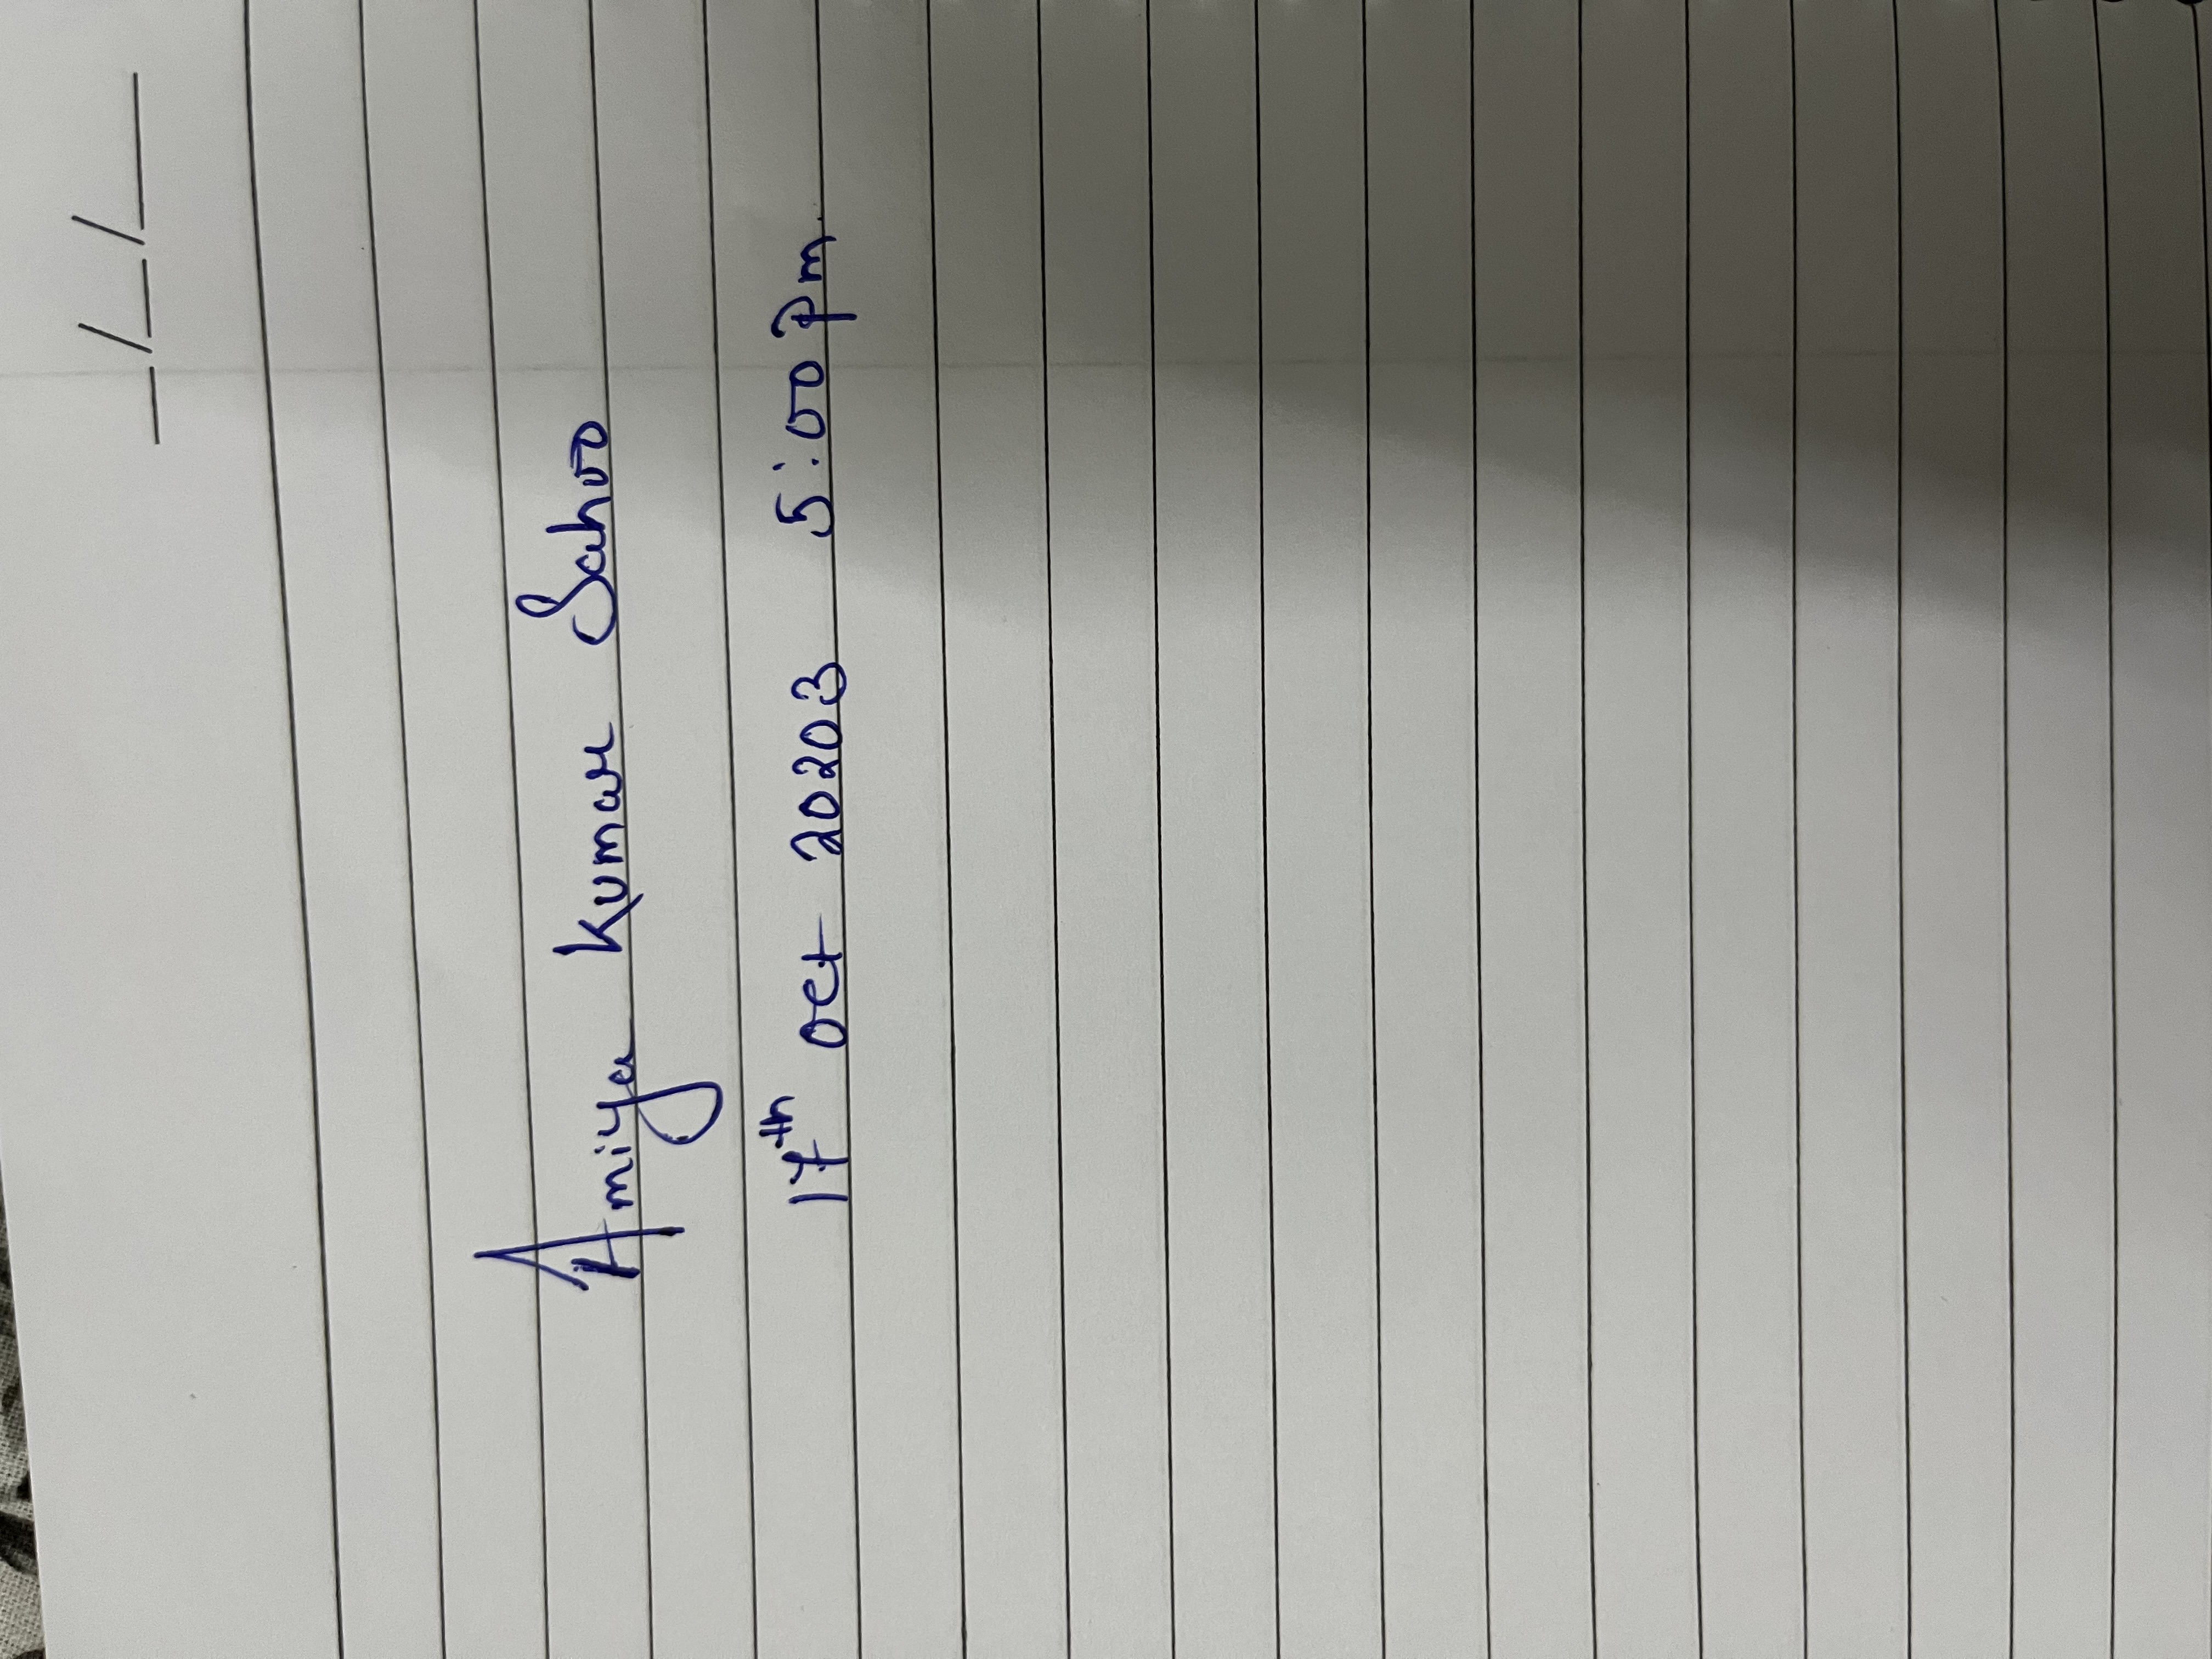 __/__/____
Amiya Kumar Sahoo
17th Oct 20203 5:00 Pm